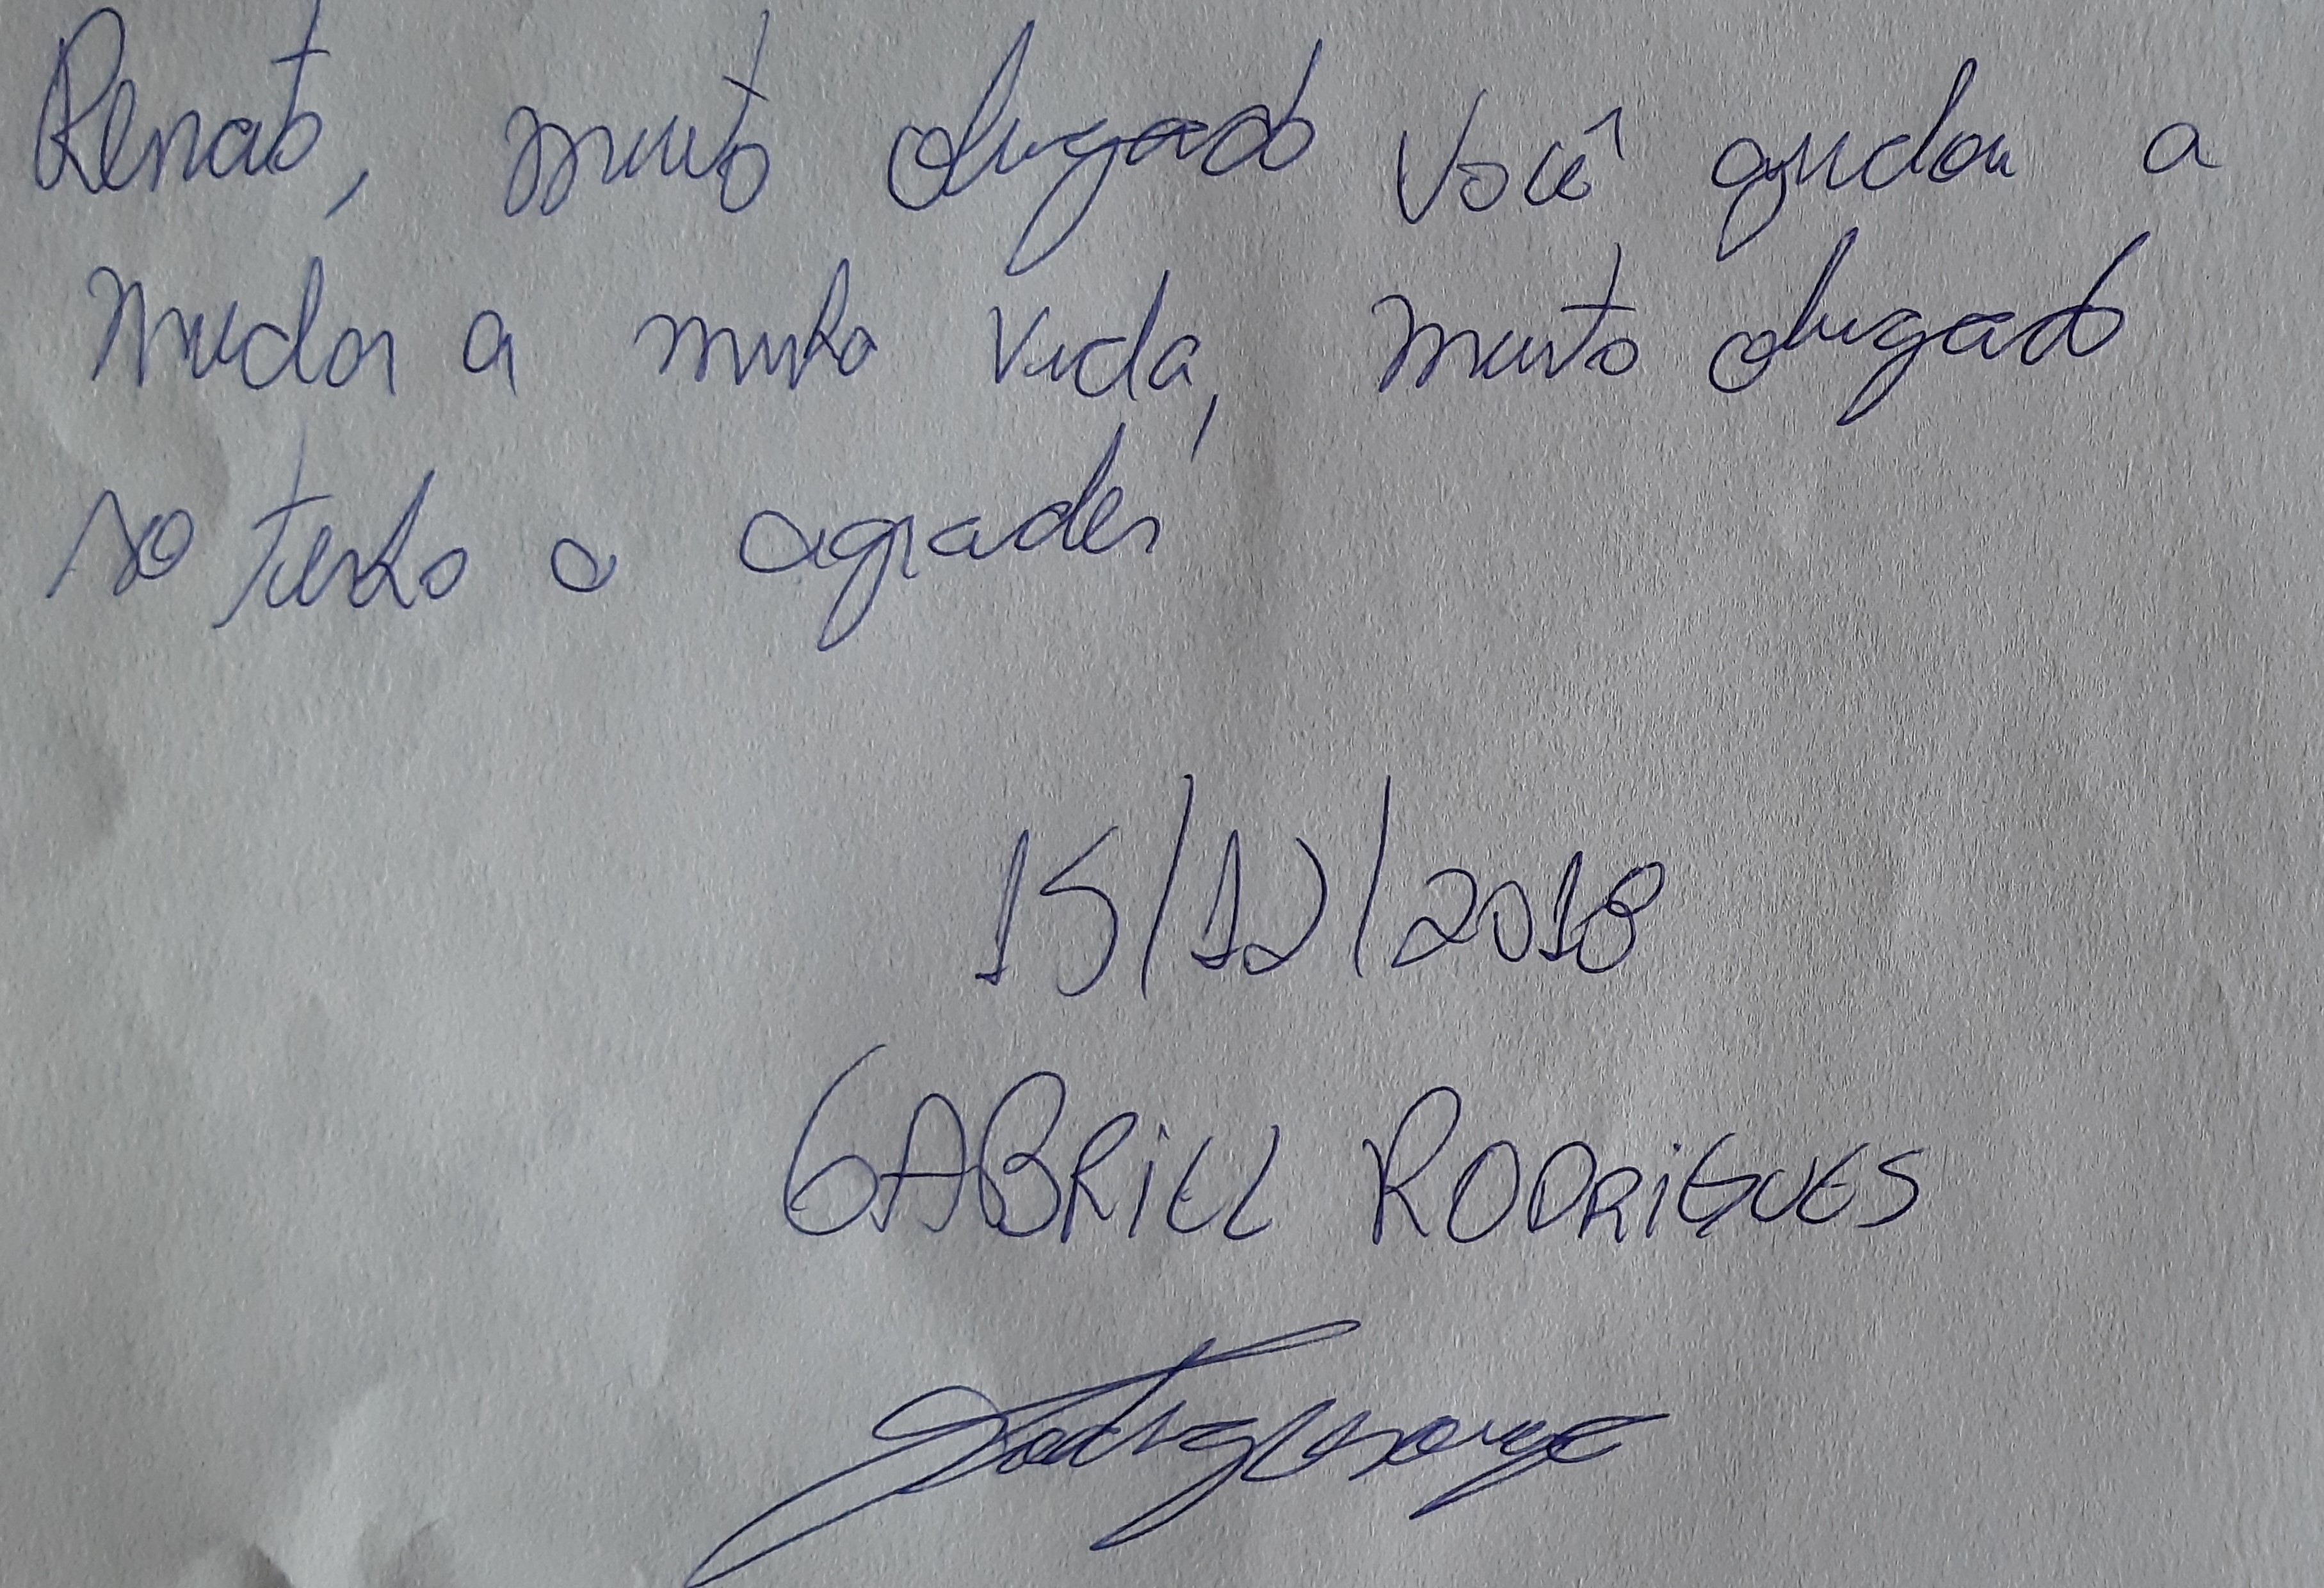 Renato, muito obrigado você ajudou a
mudar a minha vida, muito obrigado
só tenho a agrader
15/12/2018
GABRIEL RODRIGUES